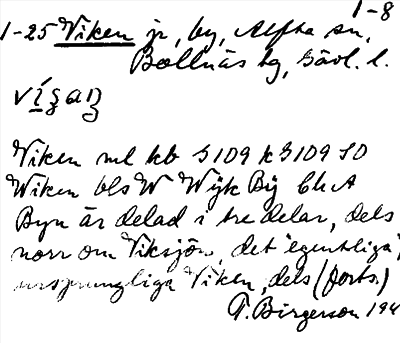 1-8
1-25 Viken jr, by, Alfta sn,
Bollnäs tg, Gävl. l.
Viken ml kb S109 k S109 SO
Wiken bls W Wijk Bÿ Ch A
Byn är delad i tre delar, dels
norr om Viksjön, det "egentliga",
ursprungliga Viken, dels (forts.)
T. Birgerson 194